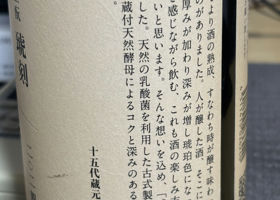 より酒の熟成、すなわち時が醸す味わ
のがありました。人が醸した酒、そこに
厚みが加わり深みが増し琥珀色にな
感じながら飲む、これも酒の楽しみ
いと思います。そんな想いを込め、「
した。天然の乳酸菌を利用した古式製
蔵付天然酵母によるコクと深みのある
十五代蔵元
琥刻